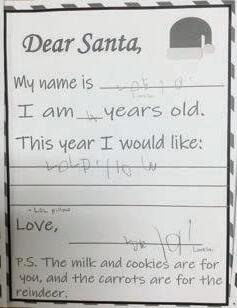 Dear Santa,
My name is
I am 4 years old.
This year I would like:
Love,
P.S. The milk and cookies are for
you, and the carrots are for the
reindeer.